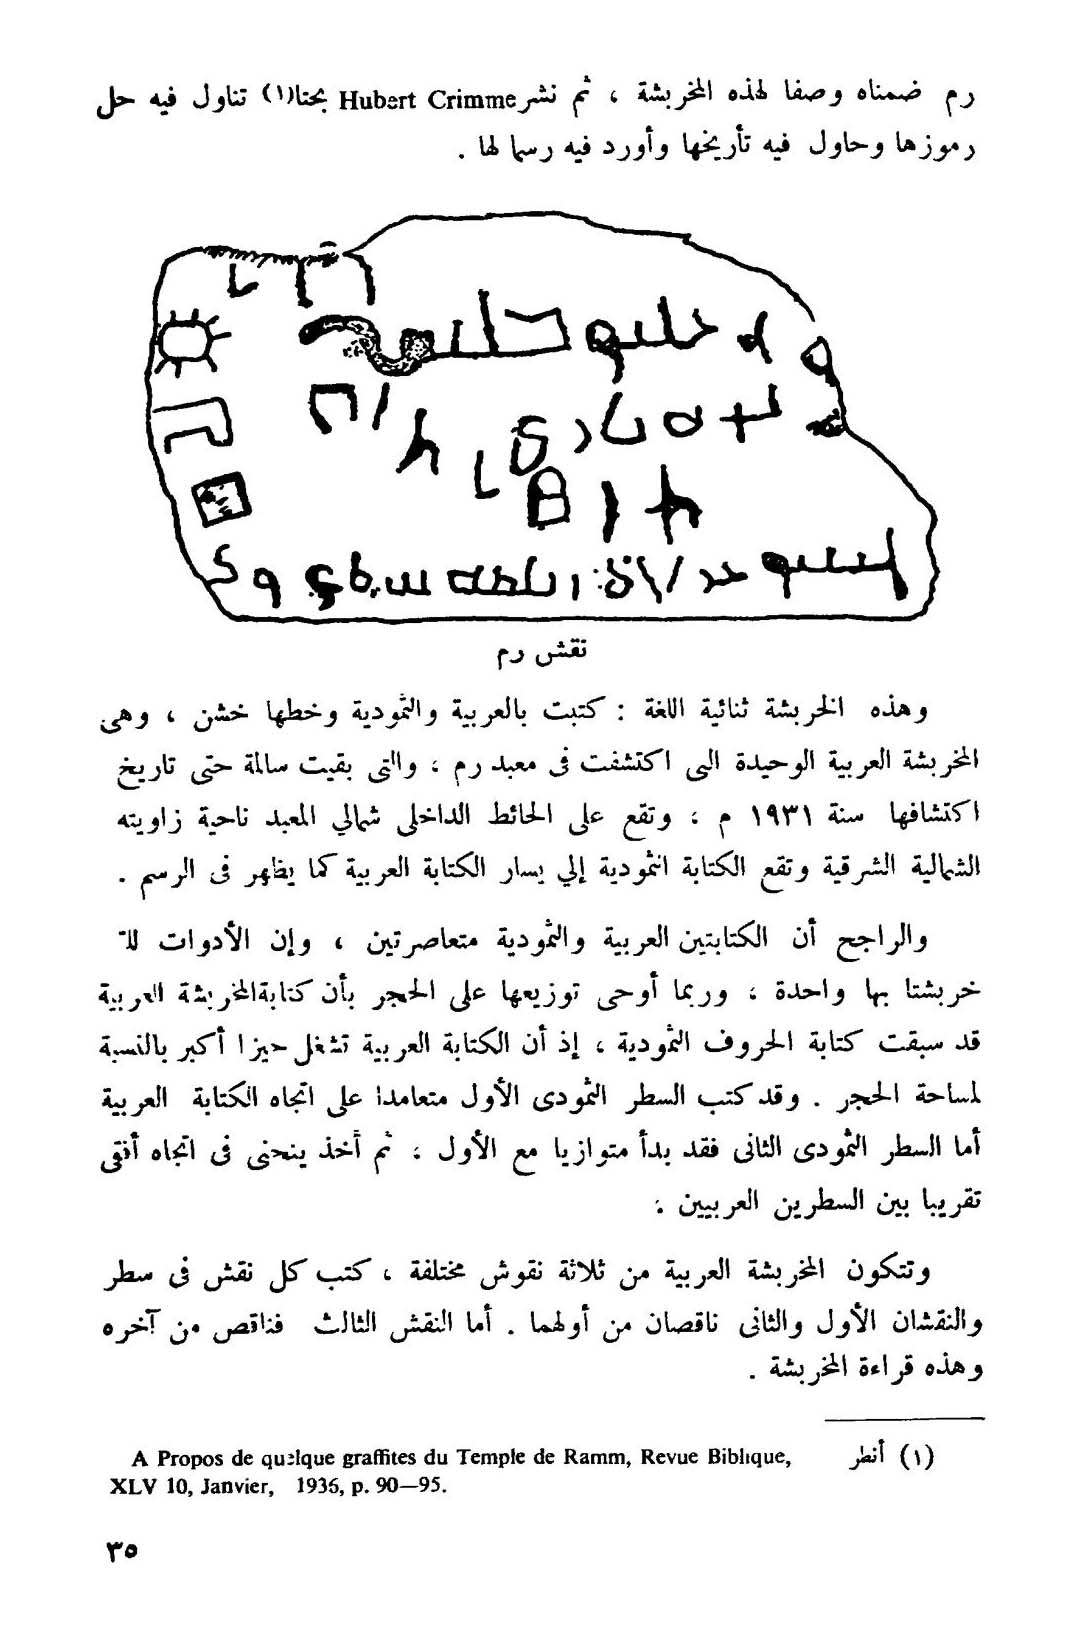 رم ضمناه وصفا لهذه المخربشة ، ثم نشر Hubert Crimme بحثا(١) تناول فيه حل
رموزها وحاول فيه تأريخها وأورد فيه رسما لها .
نقش رم
وهذه الخربشة ثنائية اللغة : كتبت بالعربية والثمودية وخطها خشن ، وهى
المخربشة العربية الوحيدة التى اكتشفت فى معبد رم ، والتى بقيت سالمة حتى تاريخ
اكتشافها سنة ١٩٣١ م ، وتقع على الحائط الداخلى شمالي المعبد ناحية زاويته
الشمالية الشرقية وتقع الكتابة الثمودية إلي يسار الكتابة العربية كما يظهر فى الرسم .
والراجح أن الكتابتين العربية والثمودية متعاصرتين ، وإن الأدوات
خربشتا بها واحدة ، وربما أوحى توزيعها على الحجر بأن كتابة المخربشة العربية
قد سبقت كتابة الحروف الثمودية ، إذ أن الكتابة العربية تشغل حيزا أكبر بالنسبة
لمساحة الحجر . وقد كتب السطر الثمودى الأول متعامدا على اتجاه الكتابة العربية
أما السطر الثمودى الثانى فقد بدأ متوازيا مع الأول ، ثم أخذ ينحنى فى اتجاه أفقى
تقريبا بين السطرين العربيين .
وتتكون المخربشة العربية من ثلاثة نقوش مختلفة ، كتب كل نقش فى سطر
والنقشان الأول والثانى ناقصان من أولهما . أما النقش الثالث فناقص من آخره
وهذه قراءة المخربشة .
(١) أنظر A Propos de quelque graffites du Temple de Ramm, Revue Biblique,
XLV 10, Janvier, 1936, p. 90—95.
٣٥